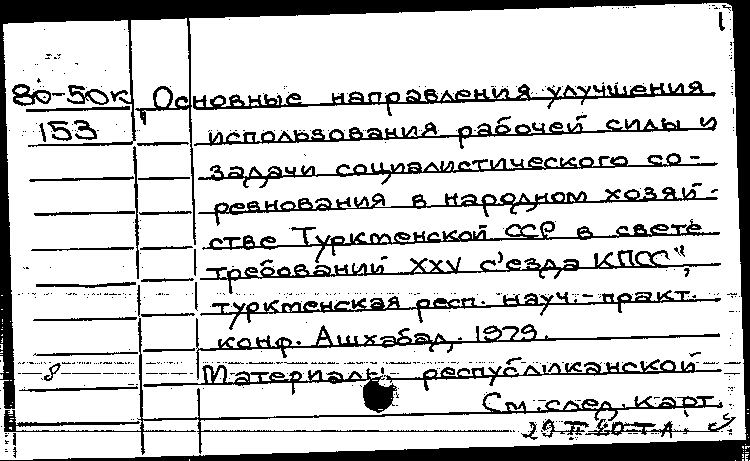 1
80-50к "Основные направления улучшения
153 использования рабочей силы и
задачи социалистического со-
ревнования в народном хозяй-
стве Туркменской ССР в свете
требований XXV съезда КПСС",
туркменская респ. науч.-практ.
конф. Ашхабад, 1979.
8 Материалы республиканской
См. след. карт.